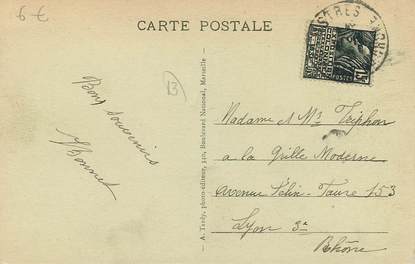 6€
CARTE POSTALE
ISTRES
POSTES
13
Bons souvenirs
Bonnet
A. Tardy, photo-éditeur, 310, Boulevard National, Marseille
Madame et Mr Triphon
a la Grille Moderne
avenue Félix-Faure 153
Lyon 3e
Rhône